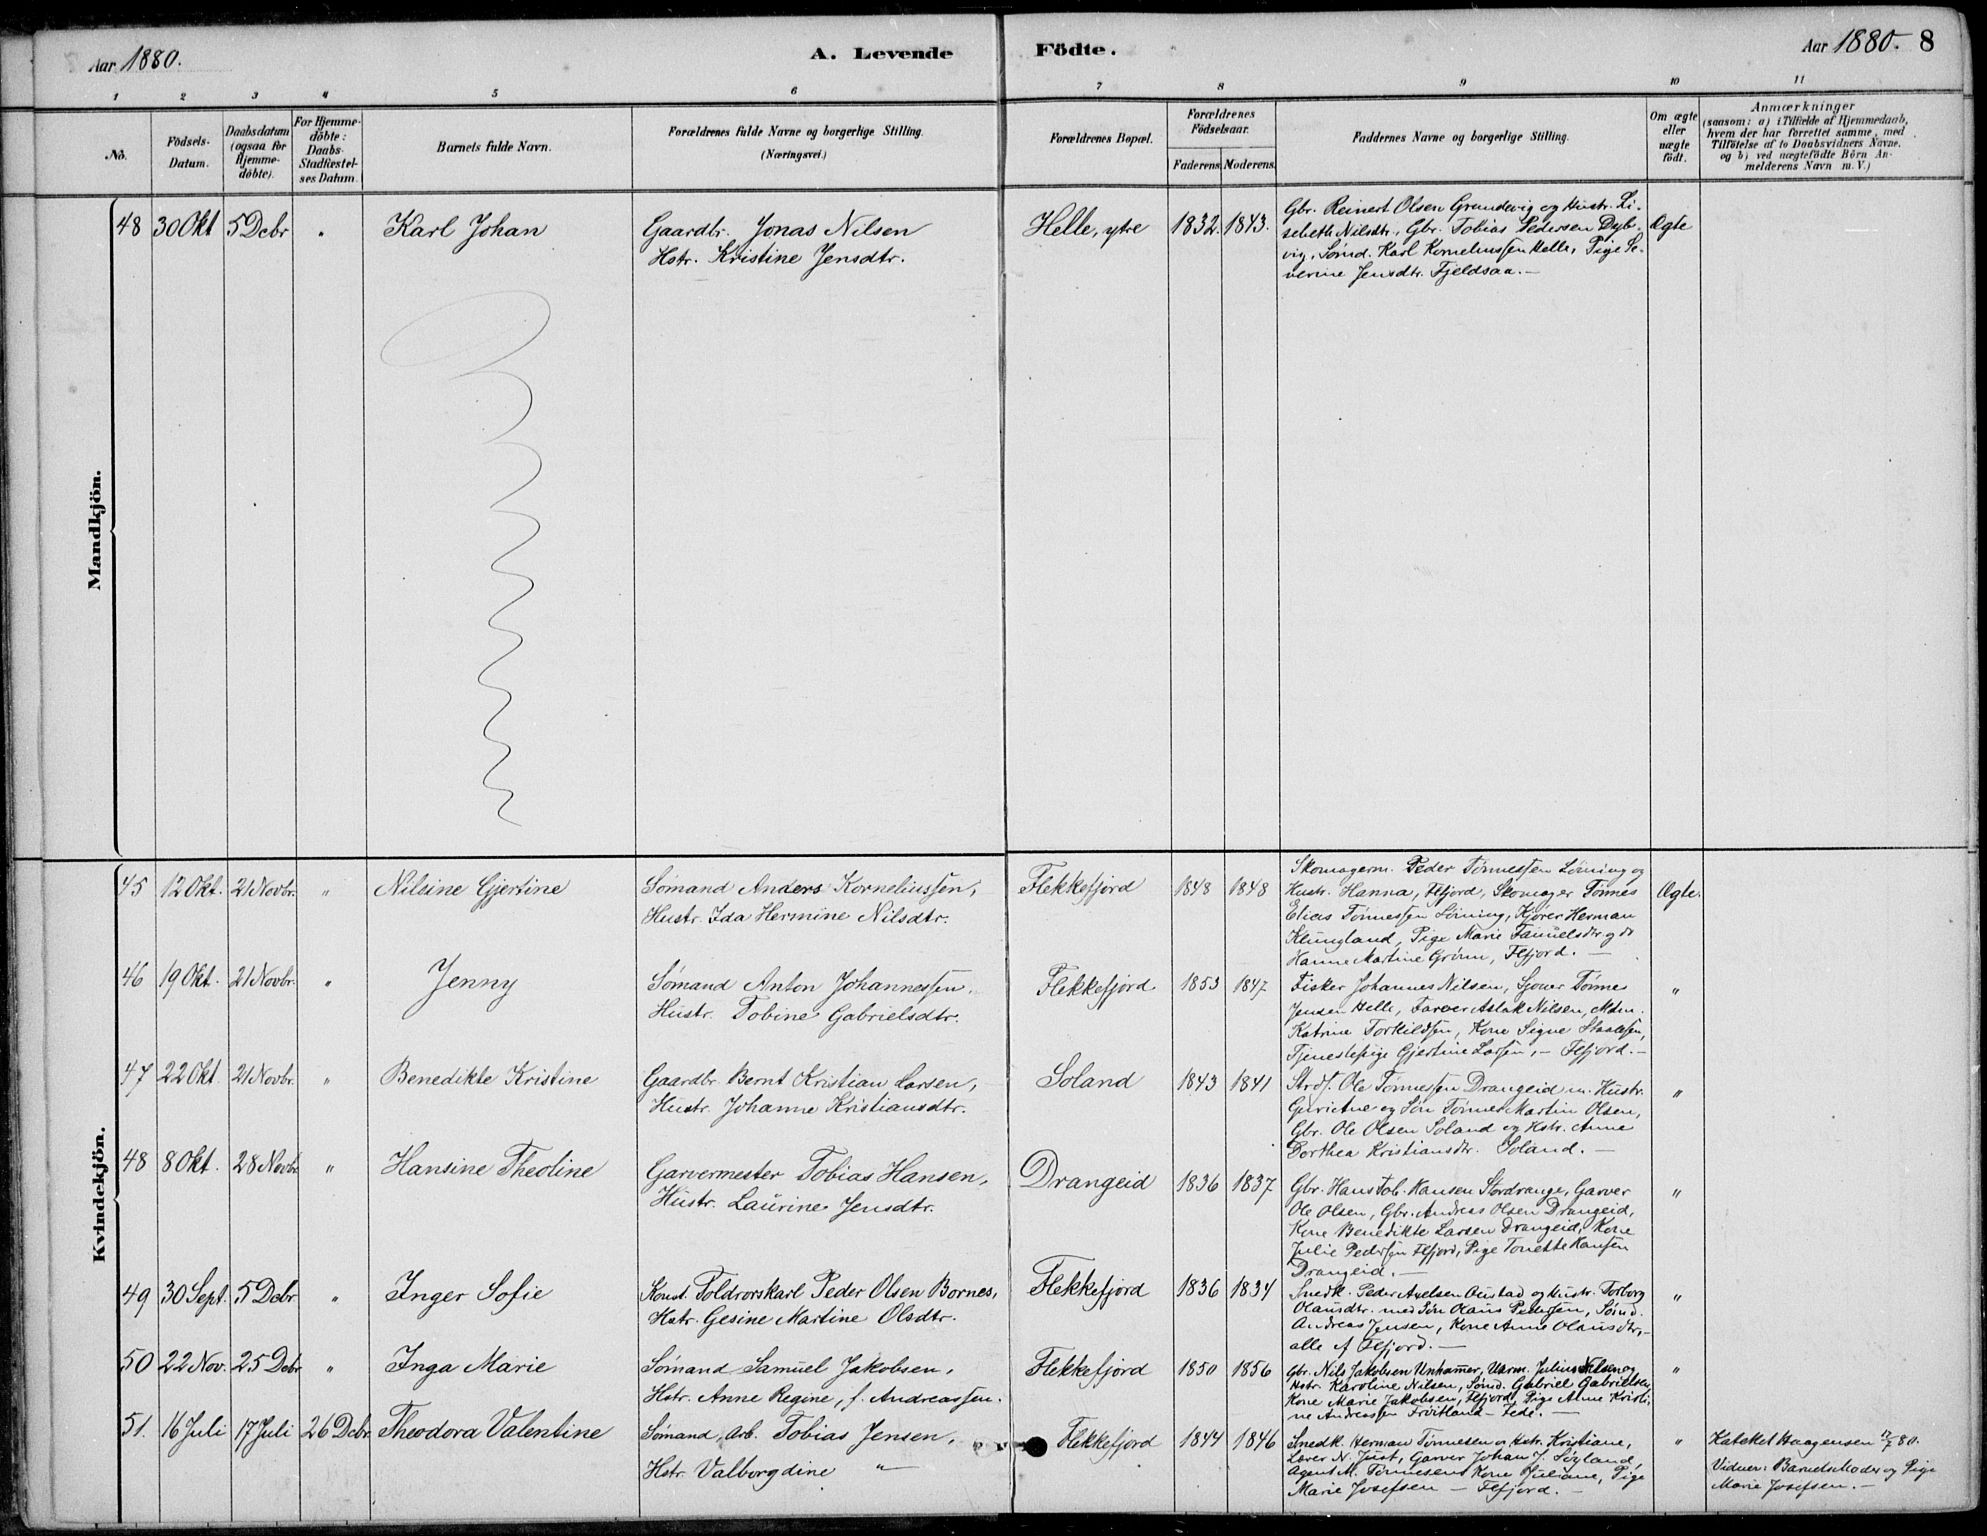 Aar 1880.
A. Levende Födte.
Aar 1880. 8
1 2 3 4 5 6 7 8 9 10 11
No.
Födsels-Datum.
Daabsdatum (ogsaa for Hjemmedöbte).
For Hjemmedöbte: Daabs-Stadfæstelses Datum.
Barnets fulde Navn.
Forældrenes fulde Navne og borgerlige Stilling. (Næringsvei.)
Forældrenes Bopæl.
Forældrenes Födselsaar.
Faderens. Moderens.
Faddernes Navne og borgerlige Stilling.
Om ægte eller uægte födt.
Anmærkninger
(saasom: a) i Tilfælde af Hjemmedaab,
hvem der har forrettet samme, med
Tilföielse af to Daabsvidners Navne,
og b) ved uægtefödte Börn An-
melderens Navn m. V.)
Mandkjön.
48 30 Okt 5 Debr " Karl Johan
Gaardbr. Jonas Nilsen
Hstr. Kristine Jensdtr.
Helle, ytre 1832. 1843.
Gbr. Reinert Olsen Grundevig og Hustr. Li-
sebeth Nilsdtr., Gbr. Tobias Pedersen Dyb-
vig, Sømd. Karl Korneliussen Helle, Pige Se-
verine Jensdtr. Fjeldsaa. —
Ægte
Kvindekjön.
45 12 Okt. 21 Novbr. " Nilsine Gjertine
Sømand Anders Korneliussen,
Hustr. Ida Hermine Nilsdtr.
Flekkefjord 1848 1848
Skomagerm. Peder Tønnessen Løining og
Hustr. Hanna, Flfjord, Skomager Tønnes
Elias Tønnessen Løining, Kjører Herman
Klungland, Pige Marie Samuelsdtr og do
Hanne Martine Grønn, Flfjord. —
Ægte.
46 19 Okt. 21 Novbr. " Jenny
Sømand Anton Johannessen,
Hustr. Tobine Gabrielsdtr.
Flekkefjord 1853 1847
Fisker Johannes Nilsen, Sjouer Tønnes
Jensen Helle, Farver Aslak Nilsen, Mdm.
Katrine Torkildsen, Kone Signe Staalesen,
Tjenestepige Gjertine Larsen, — Flfjord. —
"
47 22 Okt. 21 Novbr. " Benedikte Kristine
Gaardbr Bernt Kristian Larsen,
Hustr. Johanne Kristiansdtr.
Soland 1843 1841
Strdf. Ole Tønnessen Drangeid m. Hustr.
Guri Ane og Søn Tønnes Martin Olsen,
Gbr. Ole Olsen Soland og Hstr. Anne
Dorthea Kristiansdtr. Soland. —
"
48 8 Okt. 28 Novbr " Hansine Theoline
Garvermester Tobias Hansen,
Hustr. Laurine Jensdtr.
Drangeid 1836 1837
Gbr. Hans Tob. Hansen Stordrange, Garver
Ole Olsen, Gbr. Andreas Olsen Drangeid,
Kone Benedikte Larsen Drangeid, Kone
Julie Pedersen Flfjord, Pige Tonette Hansen
Drangeid. —
"
49 30 Sept. 5 Debr " Inger Sofie
Konst. Toldrorskarl Peder Olsen Bornes,
Hstr. Gesine Martine Olsdtr.
Flekkefjord 1836 1834
Snedk. Peder Axelsen Oustad og Hustr. Torborg
Olausdtr. med Søn Olaus Pedersen, Sømd.
Andreas Jensen, Kone Anne Olausdtr, —
alle af Flfjord. —
"
50 22 Nov. 25 Debr " Inga Marie
Sømand Samuel Jakobsen,
Hstr. Anne Regine, f. Andreassen.
Flekkefjord 1850 1856
Gbr. Nils Jakobsen Unhammer, Uarm. Julius Nilsen og
Hstr. Karoline Nilsen, Sømd. Gabriel Gabrielsen,
Kone Marie Jakobsen, Flfjord, Pige Anne Kristi-
ne Andreassen Frøitland – Fede. —
"
51. 16 Juli 17 Juli 26 Debr. Theodora Valentine
Sømand, Arb. Tobias Jensen,
Hstr. Valborgdine "
Flekkefjord 1844 1846
Snedk. Herman Tønnesen og Hstr. Kristiane,
Lærer N. Just, Garver Johan J. Søyland,
Agent M. Tønnesens Kone Juliane, Pige
Marie Josefsen — Flfjord. —
"
Kateket Haagensen 17/7 80.
Vidner: Barnets Moder og Pige
Marie Josefsen. —